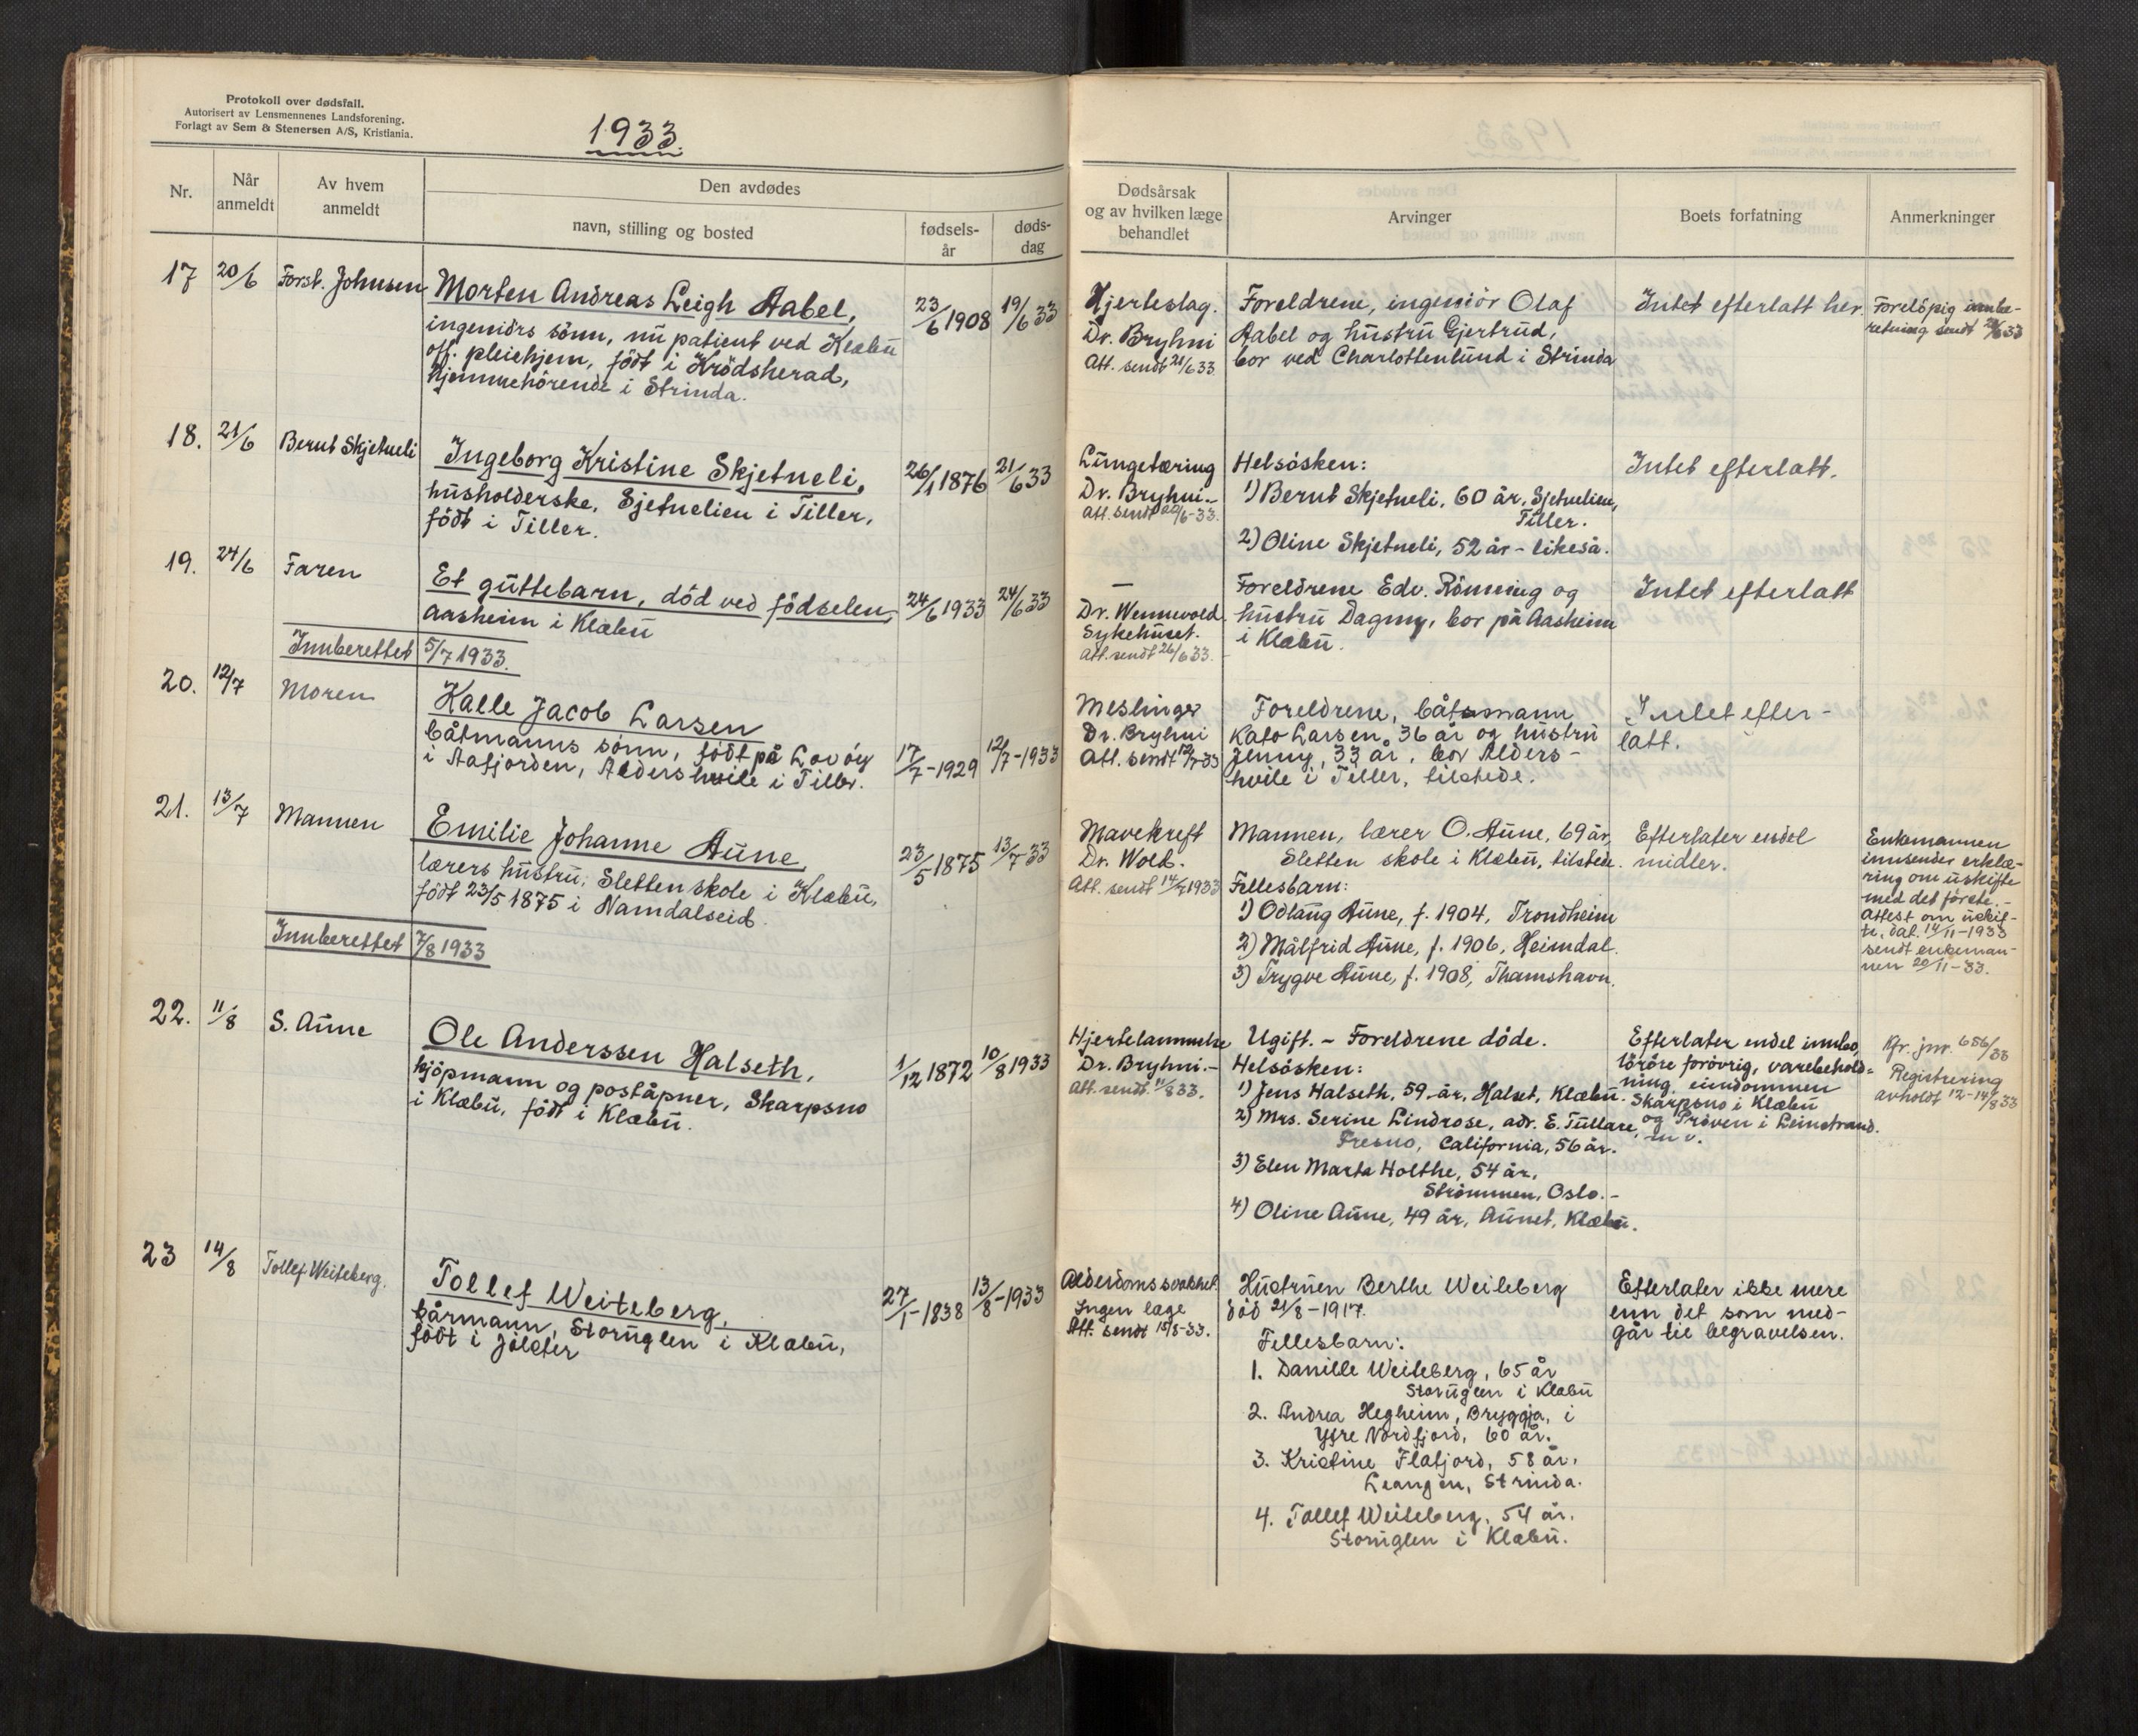 Protokoll over dødsfall.
Autorisert av Lensmennenes Landsforening.
Forlagt av Sem & Stenersen A/S, Kristiania.
1933.
Nr.
Når anmeldt
Av hvem anmeldt
Den avdødes
navn, stilling og bosted
fødsels-år
døds-dag
Dødsårsak
og av hvilken læge
behandlet
Arvinger
Boets forfatning
Anmerkninger
17 20/6 Forst. Johnsen
Morten Andreas Leigh Aabel,
ingeniørs sønn, nu patient ved Klæbu
off. pleiehjem, født i Krödsherad,
hjemmehörende i Strinda.
23/6 1908 19/6 33
Hjerteslag.
Dr. Bryhni
Att. sendt 21/6 33.
Foreldrene, ingeniör Olaf
Aabel og hustru Gjertrud,
bor ved Charlottenlund i Strinda
Intet efterlatt her.
Forelöpig innbe-
retning sendt 33
18. 21/6 Bernt Skjetneli
Ingeborg Kristine Skjetneli,
husholderske, Sjetnelien i Tiller,
født i Tiller.
26/1 1876 21/6 33
Lungetæring
Dr. Bryhni.-
Att. sendt /6-33.
Helsösken:
1) Bernt Skjetneli, 60 år, Sjetnelien,
Tiller.
2) Oline Skjetneli, 52 år - likeså.
Intet efterlatt.
19. 24/6 Faren
Et guttebarn, död ved födselen,
Aasheim i Klæbu
24/6 1933 24/6 33
—
Dr. Wennevold.
Sykehuset.
Att. sendt 26/6 33.
Foreldrene Edv. Rönning og
hustru Dagny, bor på Aasheim
i Klæbu.
Intet efterlatt
Innberettet 5/7 1933.
20. 12/7 Moren
Kalle Jacob Larsen
båtmanns sönn, födt på Lovöy
i Aafjorden, Aldershvile i Tiller.
17/7-1929 12/7-1933
Meslinger
Dr. Bryhni
Att. sendt 12/7 33
Foreldrene, båtsmann
Kato Larsen, 36 år og hustru
Jenny, 33 år, bor Alders-
hvile i Tiller, tilstede.
Intet efter-
latt.
21. 13/7 Mannen
Emilie Johanne Aune,
lærers hustru, Sletten skole i Klæbu,
födt 23/5 1875 i Namdalseid.
23/5 1875 13/7 33
Mavekreft
Dr. Wold.
Att. sendt 14/7 1933
Mannen, lærer O. Aune, 69 år,
Sletten skole i Klæbu, tilstede.
Fellesbarn:
1) Odlaug Aune, f. 1904, Trondheim
2) Målfrid Aune, f. 1906, Heimdal.
3) Trygve Aune, f. 1908, Thamshavn.
Efterlater endel
midler.
Enkemannen
innsender erklæ-
ring om uskifte
med det förste. -
Attest om uskif-
te, dat. 14/11-1933
sendt enkeman-
nen 20/11-33.
Innberettet 7/8 1933
22. 11/8 S. Aune
Ole Anderssen Halseth,
kjöpmann og poståpner, Skarpsno
i Klæbu, födt i Klæbu.
1/12 1872 10/8 1933
Hjertelammelse
Dr. Bryhni.-
Att. sendt 11/8 33.
Ugift. - Foreldrene döde.
Helsösken:
1) Jens Halseth, 59 år, Halset, Klæbu.
2) Mrs. Serine Lindrose, adr. E. Tullare,
Fresno, California, 56 år.
3) Elen Marta Holthe, 54 år,
Strömmen, Oslo.-
4) Oline Aune, 49 år, Aunet, Klæbu.
Efterlater endel innbo,
löröre forövrig, varebehold-
ning, eiendommen
Skarpsno i Klæbu
og Pröven i Leinstrand.
m v.
Kfr. jnr. 656/33
Registrering
avholdt 12-14/8 33
23 14/8 Tollef Weiteberg.
Tollef Weiteberg,
kårmann, Storuglen i Klæbu,
födt i Jölster
27/1-1838 13/8-1933
Alderdomssvakhet
Ingen læge
Att. sendt 15/8-33.
Hustruen Berthe Weiteberg
död 21/8-1917.
Fellesbarn:
1. Danille Weiteberg, 65 år
Storuglen i Klæbu
2. Andrea Hegheim, Bryggja, i
Ytre Nordfjord, 60 år.
3. Kristine Flatjord, 58 år,
Leangen, Strinda.
4. Tollef Weiteberg, 54 år.
Storuglen i Klæbu.
Efterlater ikke mere
enn det som med-
går til begravelsen.